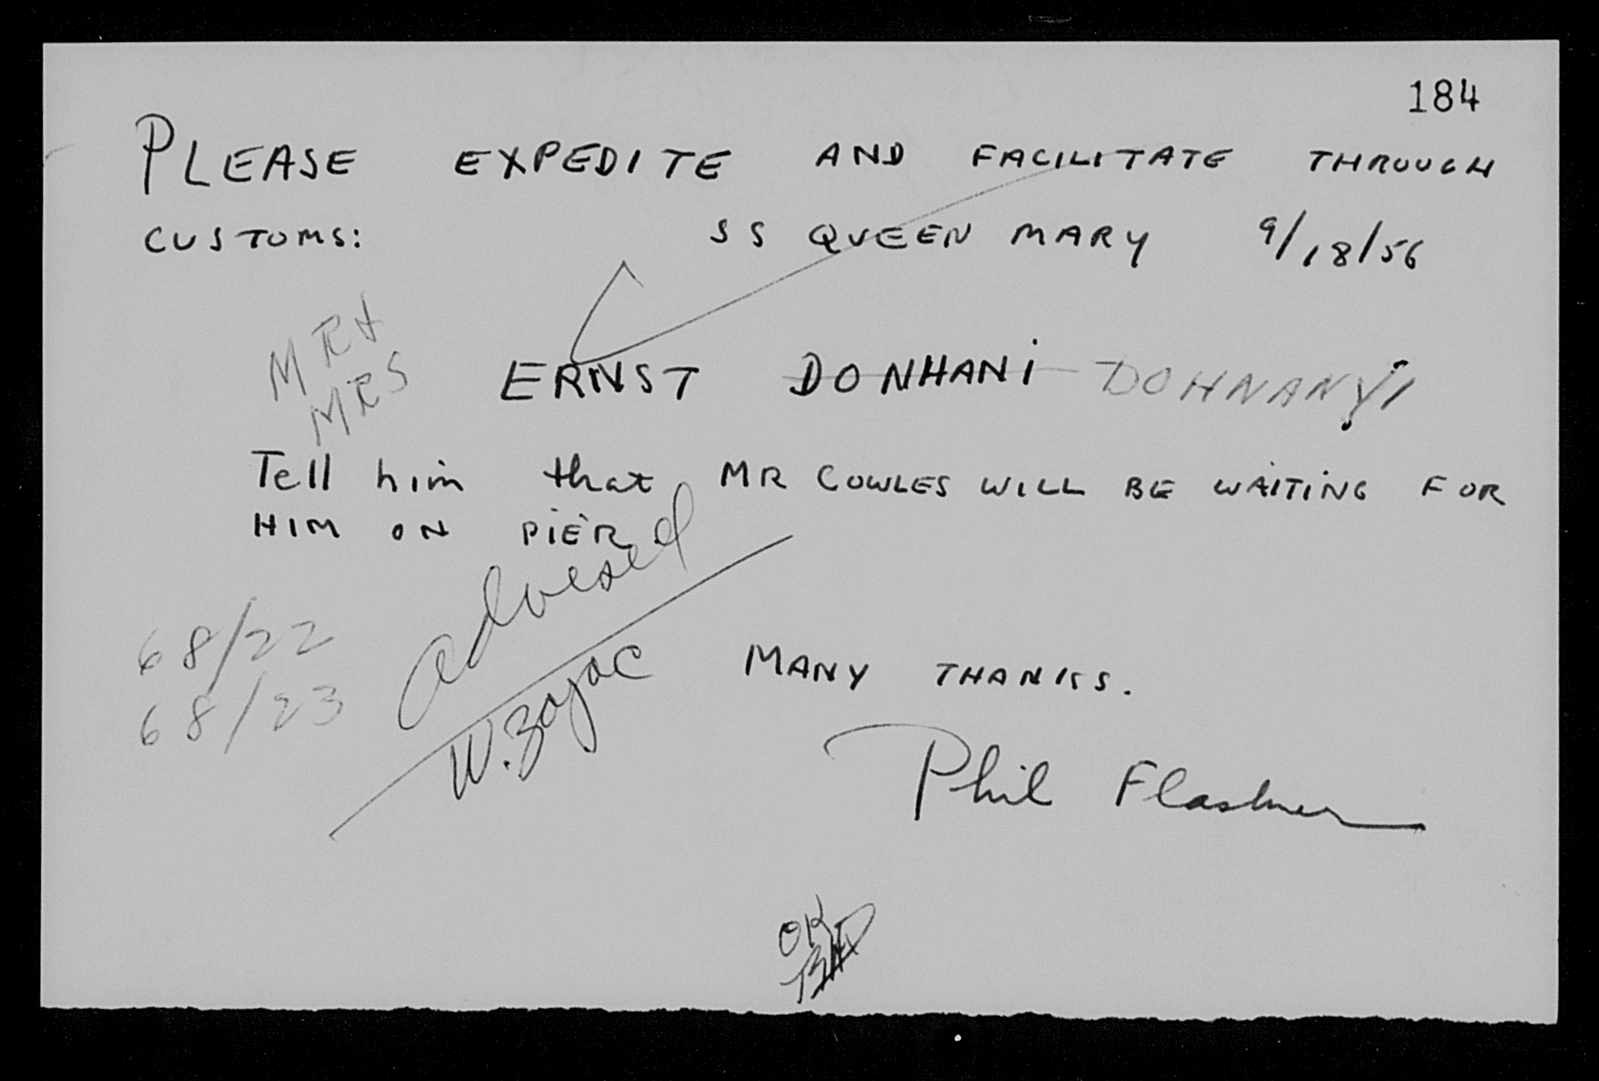 184
PLEASE EXPEDITE AND FACILITATE THROUGH
CUSTOMS: SS QUEEN MARY 9/18/56
MR &
MRS
ERNST DONHANI DOHNANYI
Tell him that MR COWLES WILL BE WAITING FOR
HIM ON PIER
advised
W. Zajac
68/22
68/23
MANY THANKS.
Phil Flashner
OK